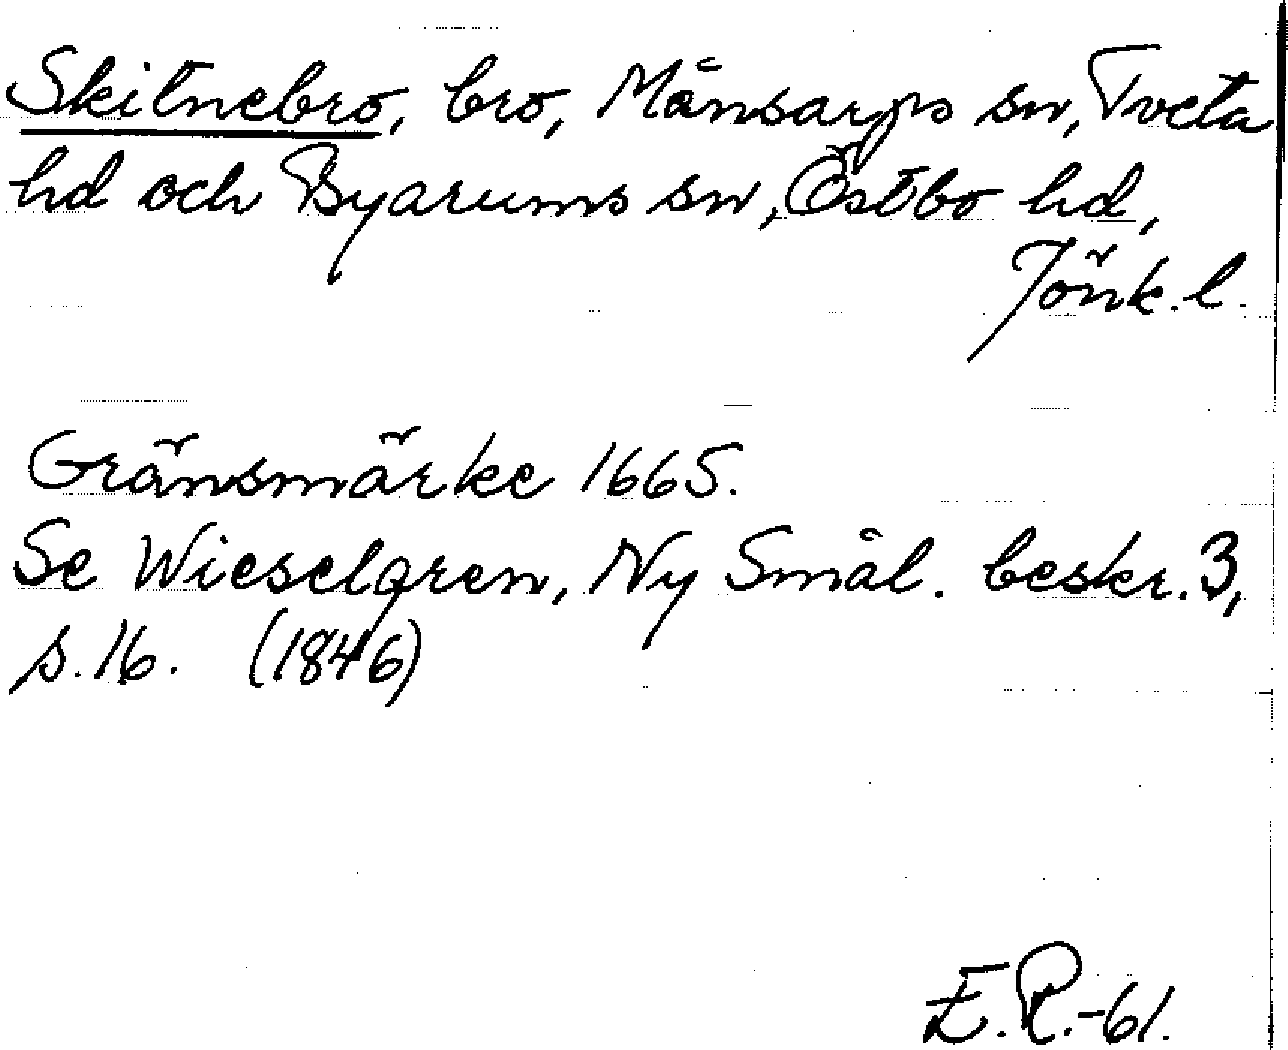 Skitnebro, bro, Månsarps sn, Tveta
hd och Byarums sn, Östbo hd,
Jönk. l.
Gränsmärke 1665.
Se Wieselgren, Ny Smål. beskr. 3,
s. 16. (1846)
E. R.-61.